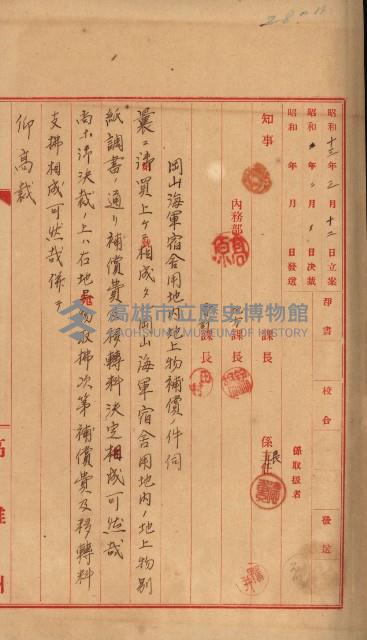 昭和十三年三月十二日立案
昭和 年 月 日決裁
昭和 年 月 日發送
淨書
校合
發送
知事
內務部
課長
會計課長
係長
係取扱者
岡山海軍宿舍用地內地上物補償ノ件伺
曩ニ御買上ケ相成タ岡山海軍宿舍用地內ノ地上物別
紙調書ノ通リ補償費及移轉料決定相成可然哉
尚本件決裁ノ上ハ右地上物取拂次第補償費及移轉料
支拂相成可然哉併テ
仰高裁
高雄州
高雄市立歷史博物館
KAOHSIUNG MUSEUM OF HISTORY